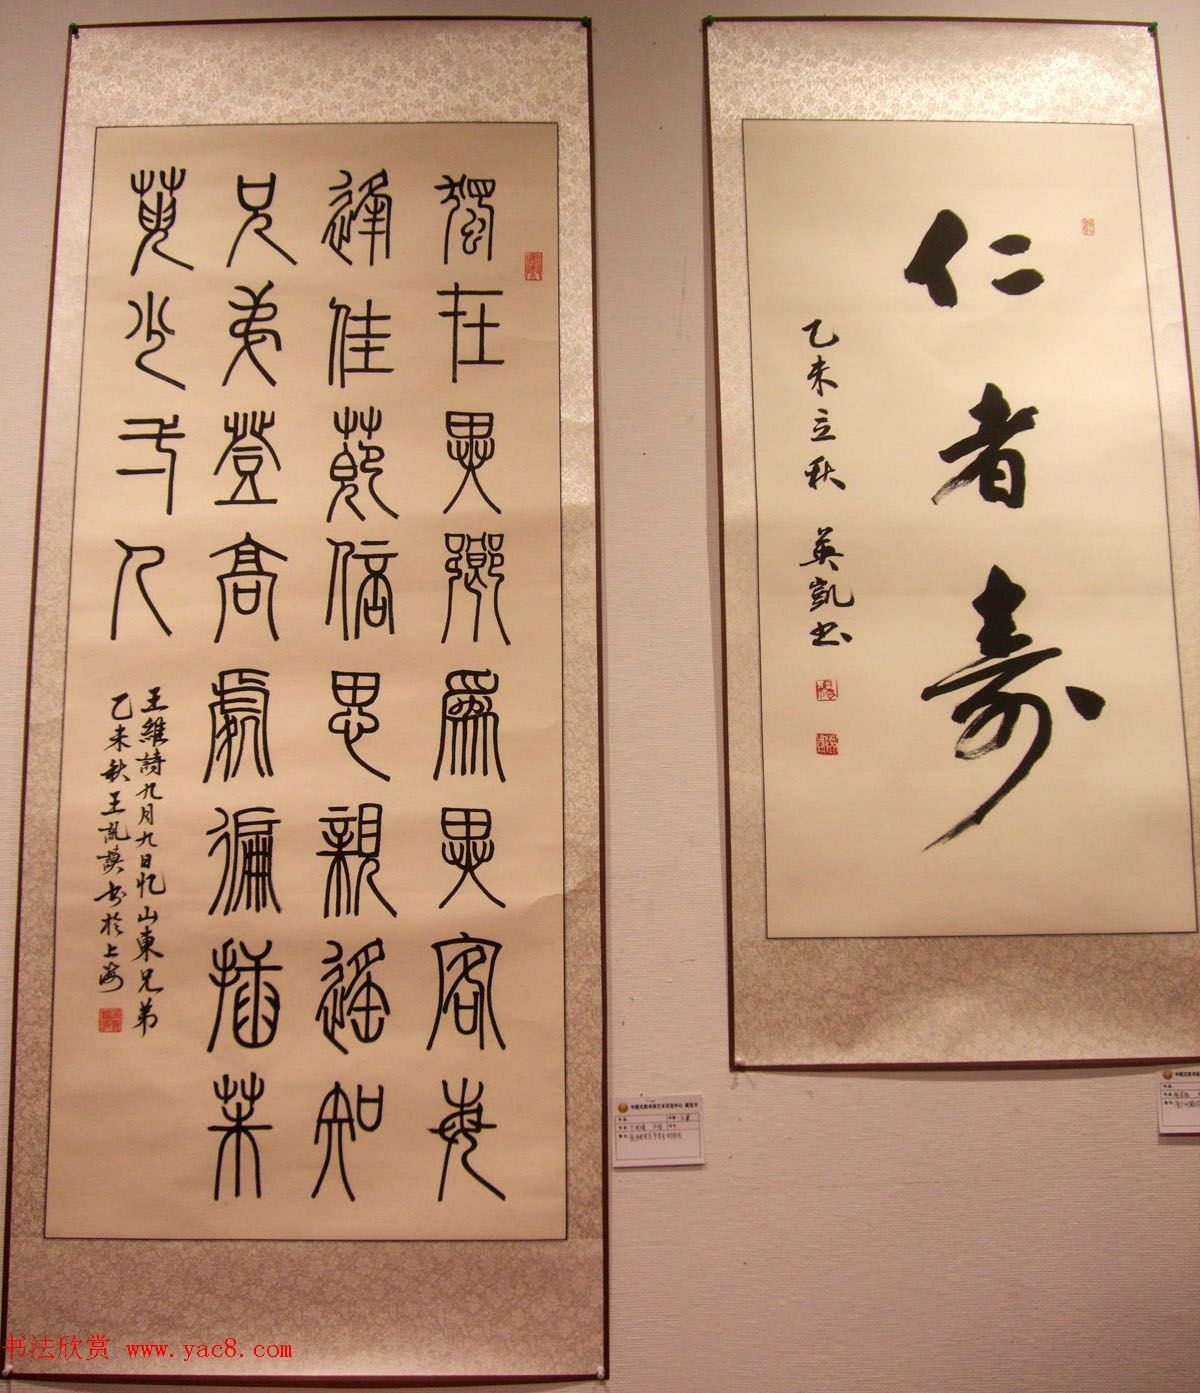 仁者壽
乙未立秋 英凱书
獨在異鄉爲異客每
逢佳節倍思親遙知
兄弟登高處徧插茱
萸少一人
王維詩九月九日忆山東兄弟
乙未秋王書於上海
书法欣赏 www.yac8.com